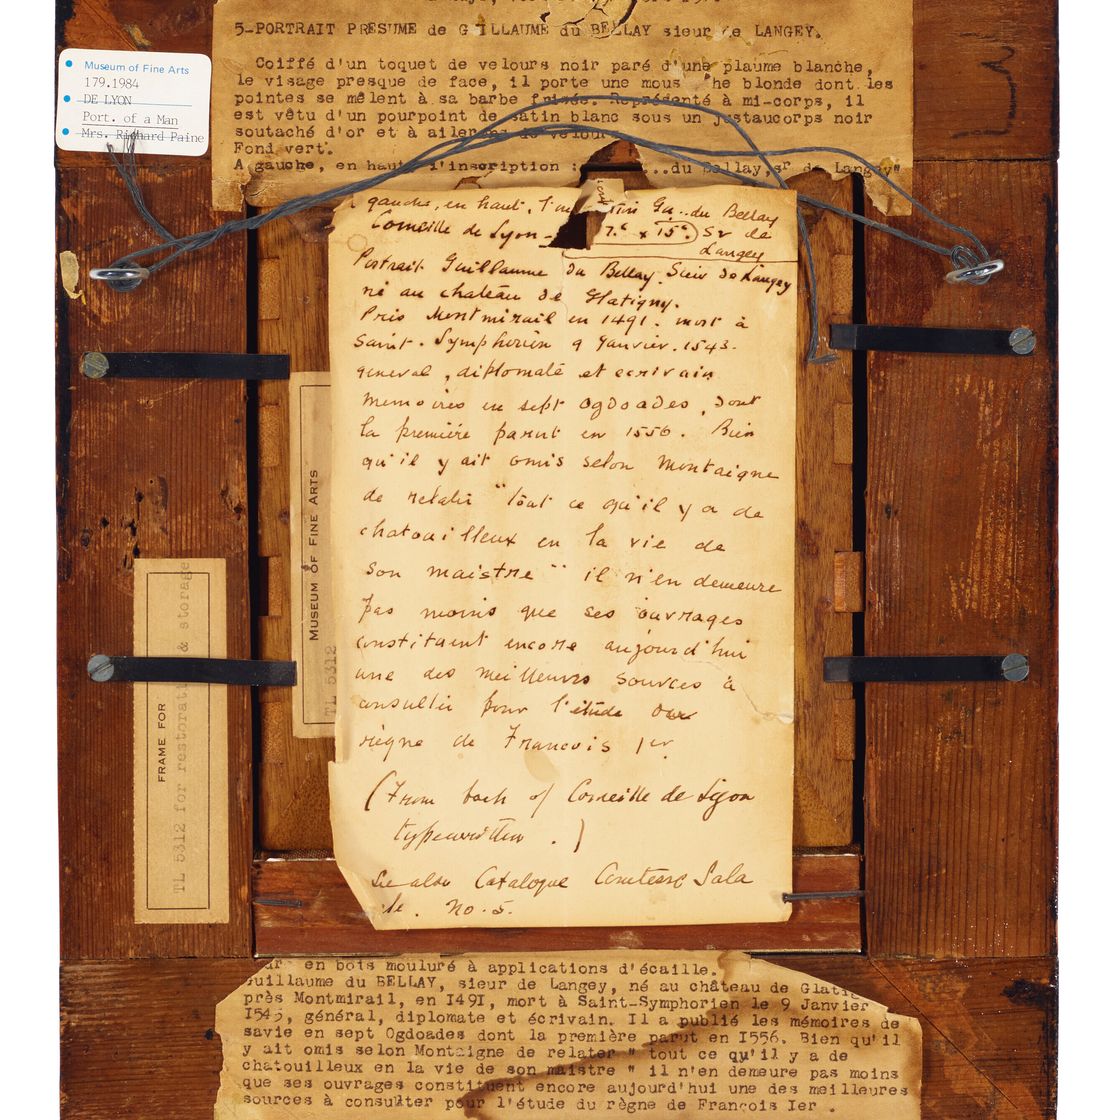 5-PORTRAIT PRESUME de G ILLAUME du BELLAY sieur de LANGEY.
Coiffé d'un toquet de velours noir paré d'une plaume blanche,
le visage presque de face, il porte une mous he blonde dont les
pointes se mêlent à sa barbe frisée. Représenté à mi-corps, il
est vêtu d'un pourpoint de satin blanc sous un justaucorps noir
soutaché d'or et à ailer de velour
Fond vert.
A gauche, en haut l'inscription : ...du Bellay, sr de Langey"
Museum of Fine Arts
179.1984
DE LYON
Port. of a Man
Mrs. Richard Paine
gauche, en haut, l'in Gu..du Bellay
Corneille de Lyon - 7.c x 15c. Sr de
Langey
Portrait Guillaume du Bellay. Sieur de Langey
né au chateau de Glatigny.
Près Montmirail en 1491. mort à
Saint-Symphorien 9 Janvier.1543.
general, diplomate et ecrivain
Memoires en sept Ogdoades, dont
la première parut en 1556. Bien
qu'il y ait omis selon Montaigne
de relater "tout ce qu'il y a de
chatouilleux en la vie de
son maistre" il n'en demeure
pas moins que ses ouvrages
constituent encore aujourd'hui
une des meilleurs sources à
consulter pour l'étude
règne de Francois 1er
(From back of Corneille de Lyon
typewritten.)
See also Catalogue Comtesse Sala
No. 5.
MUSEUM OF FINE ARTS
TL 5312
FRAME FOR
TL 5312 for restoration & storage
en bois mouluré à applications d'écaille.
Guillaume du BELLAY, sieur de Langey, né au château de Glatig
près Montmirail, en I49I, mort à Saint-Symphorien le 9 Janvier
I543, général, diplomate et écrivain. Il a publié les mémoires de
savie en sept Ogdoades dont la première parut en I556. Bien qu'il
y ait omis selon Montaigne de relater " tout ce qu'il y a de
chatouilleux en la vie de son maistre " il n'en demeure pas moins
que ses ouvrages constituent encore aujourd'hui une des meilleures
sources à consulter pour l'étude du règne de François Ier .